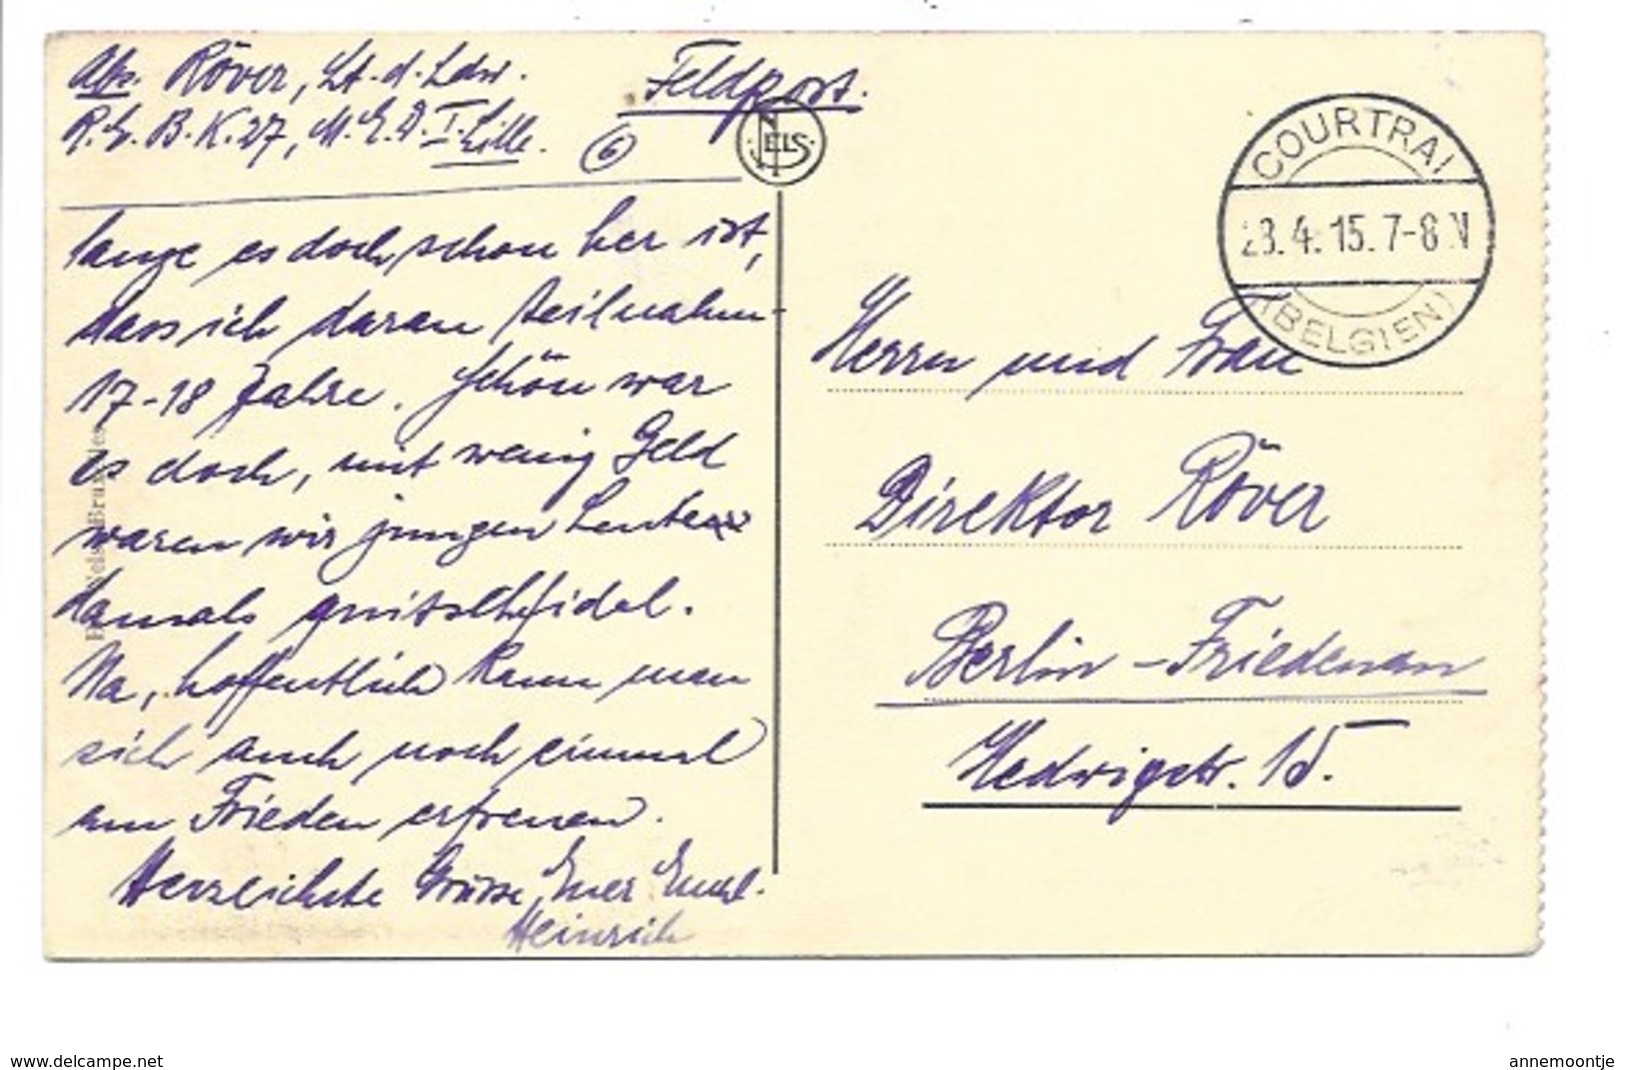 Abs. Röver, Lt. d. Ldw.
R. E. B. K. 27, M. E. D. I. Lille.
6
Feldpost.
NELS
lange es doch schon her ist,
dass ich daran teilnahm -
17-18 Jahre. Schön war
es doch, mit wenig Geld
waren wir jungen Leute
damals quitschfidel.
Na, hoffentlich kann man
sich auch noch einmal
am Frieden erfreuen.
Herzlichste Grüsse, Euer
Heinrich
COURTRAI
28.4.15.7-8 N
(BELGIEN)
Herrn und Frau
Direktor Röver
Berlin - Friedenau
Hedwigstr. 15.
www.delcampe.net
annemoontje